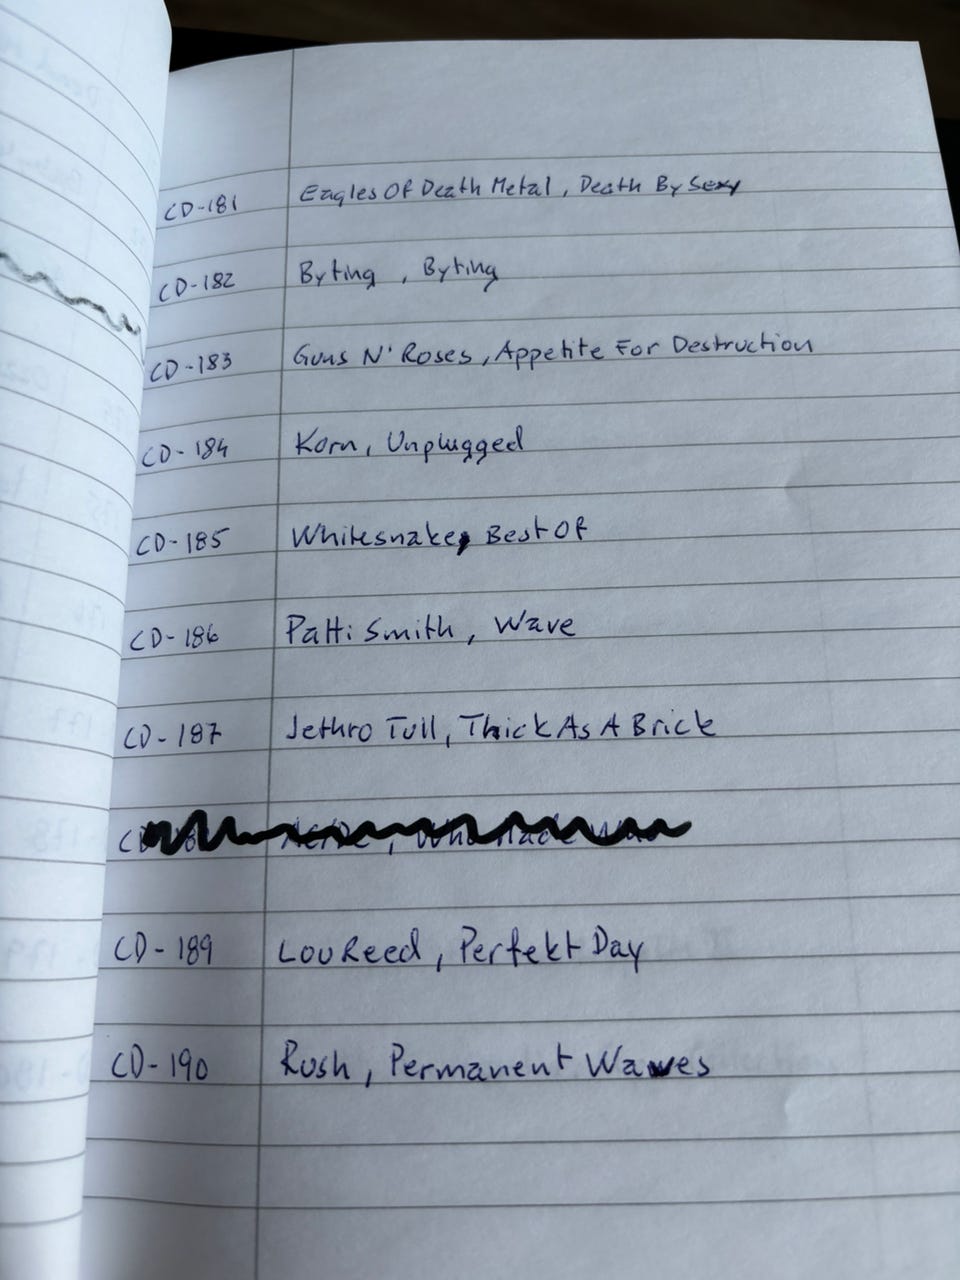 CD-181 Eagles Of Death Metal, Death By Sexy
CD-182 Byting, Byting
CD-183 Guns N' Roses, Appetite For Destruction
CD-184 Korn, Unplugged
CD-185 Whitesnake, Best Of
CD-186 Patti Smith, Wave
CD-187 Jethro Tull, Thick As A Brick
CD-189 Lou Reed, Perfekt Day
CD-190 Rush, Permanent Wawes